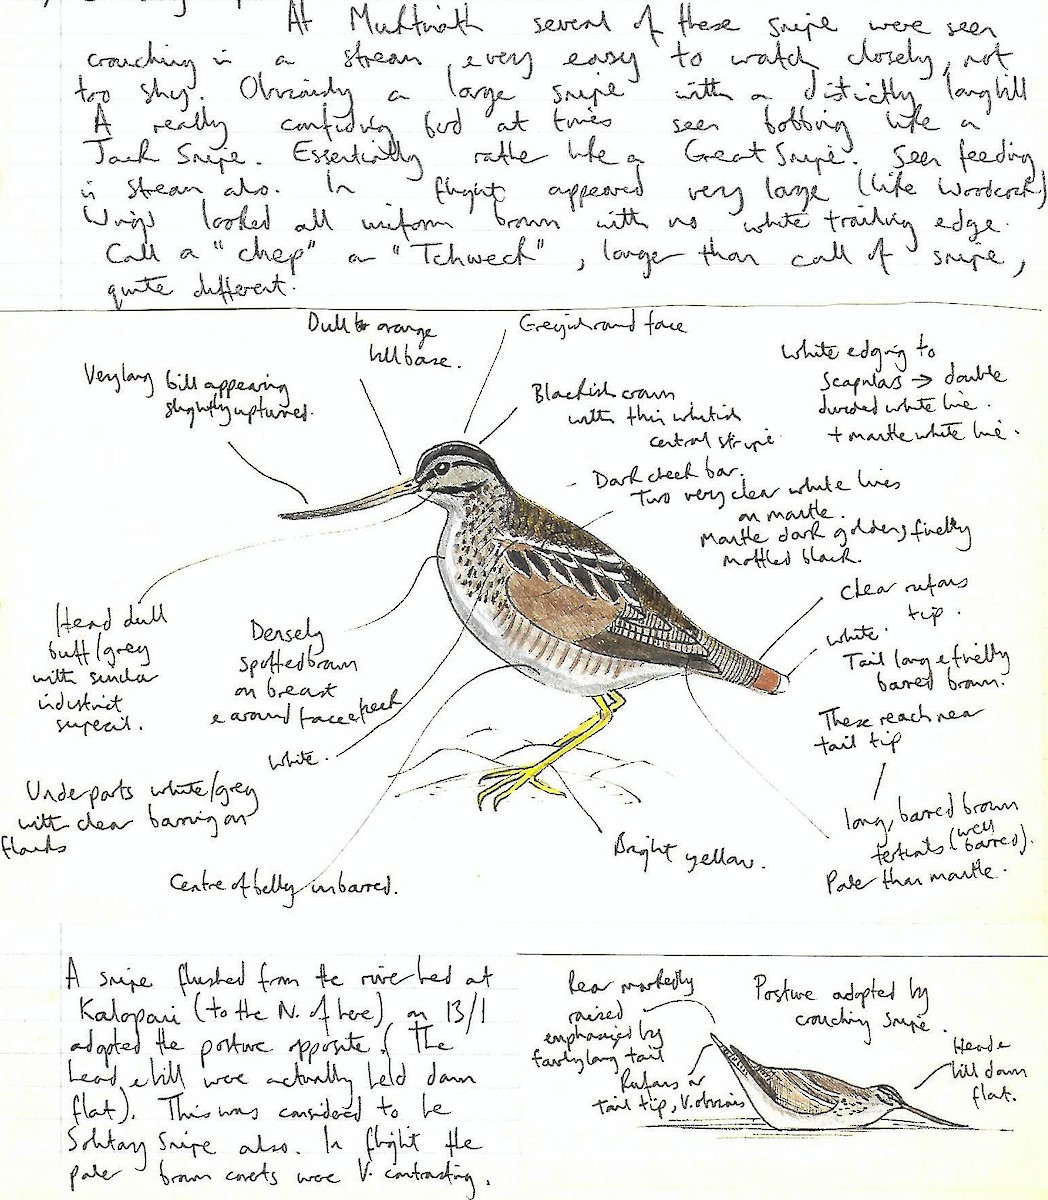 At Muktinath several of these snipe were seen
crouching in a stream, & very easy to watch closely, not
too shy. Obviously a large snipe with a distictly long bill
A really confiding bird at times seen bobbing like a
Jack Snipe. Essentially rather like a Great Snipe. Seen feeding
in stream also. In flight appeared very large (like Woodcock)
Wings looked all uniform brown with no white trailing edge.
Call a "chep" or "Tchweck", longer than call of snipe,
quite different.
Dull orange
bill base.
Greyish round face
Very long bill appearing
slightly upturned.
Blackish crown
with thin whitish
central stripe
White edging to
Scapulars → double
divided white line.
+ mantle white line.
Dark cheek bar.
Two very clear white lines
on mantle.
Mantle dark golden, finely
mottled black.
Clear rufous
tip.
white.
Tail long & finely
barred brown.
These reach near
tail tip
long, barred brown
tertials (well barred).
Paler than mantle.
Head dull
buff/grey
with similar
indistinct
supercil.
Densely
spotted brown
on breast
& around face & neck
white.
Underparts white/grey
with clear barring on
flanks
Centre of belly unbarred.
Bright yellow.
A snipe flushed from the river bed at
Kalopani (to the N. of here) on 13/1
adopted the posture opposite. (The
head & bill were actually held down
flat). This was considered to be
Solitary Snipe also. In flight the
paler brown coverts were V. contrasting.
Rear markedly
raised
emphasized by
fairly long tail
Rufous on
tail tip, V. obvious
Posture adopted by
crouching snipe.
Head &
bill down
flat.